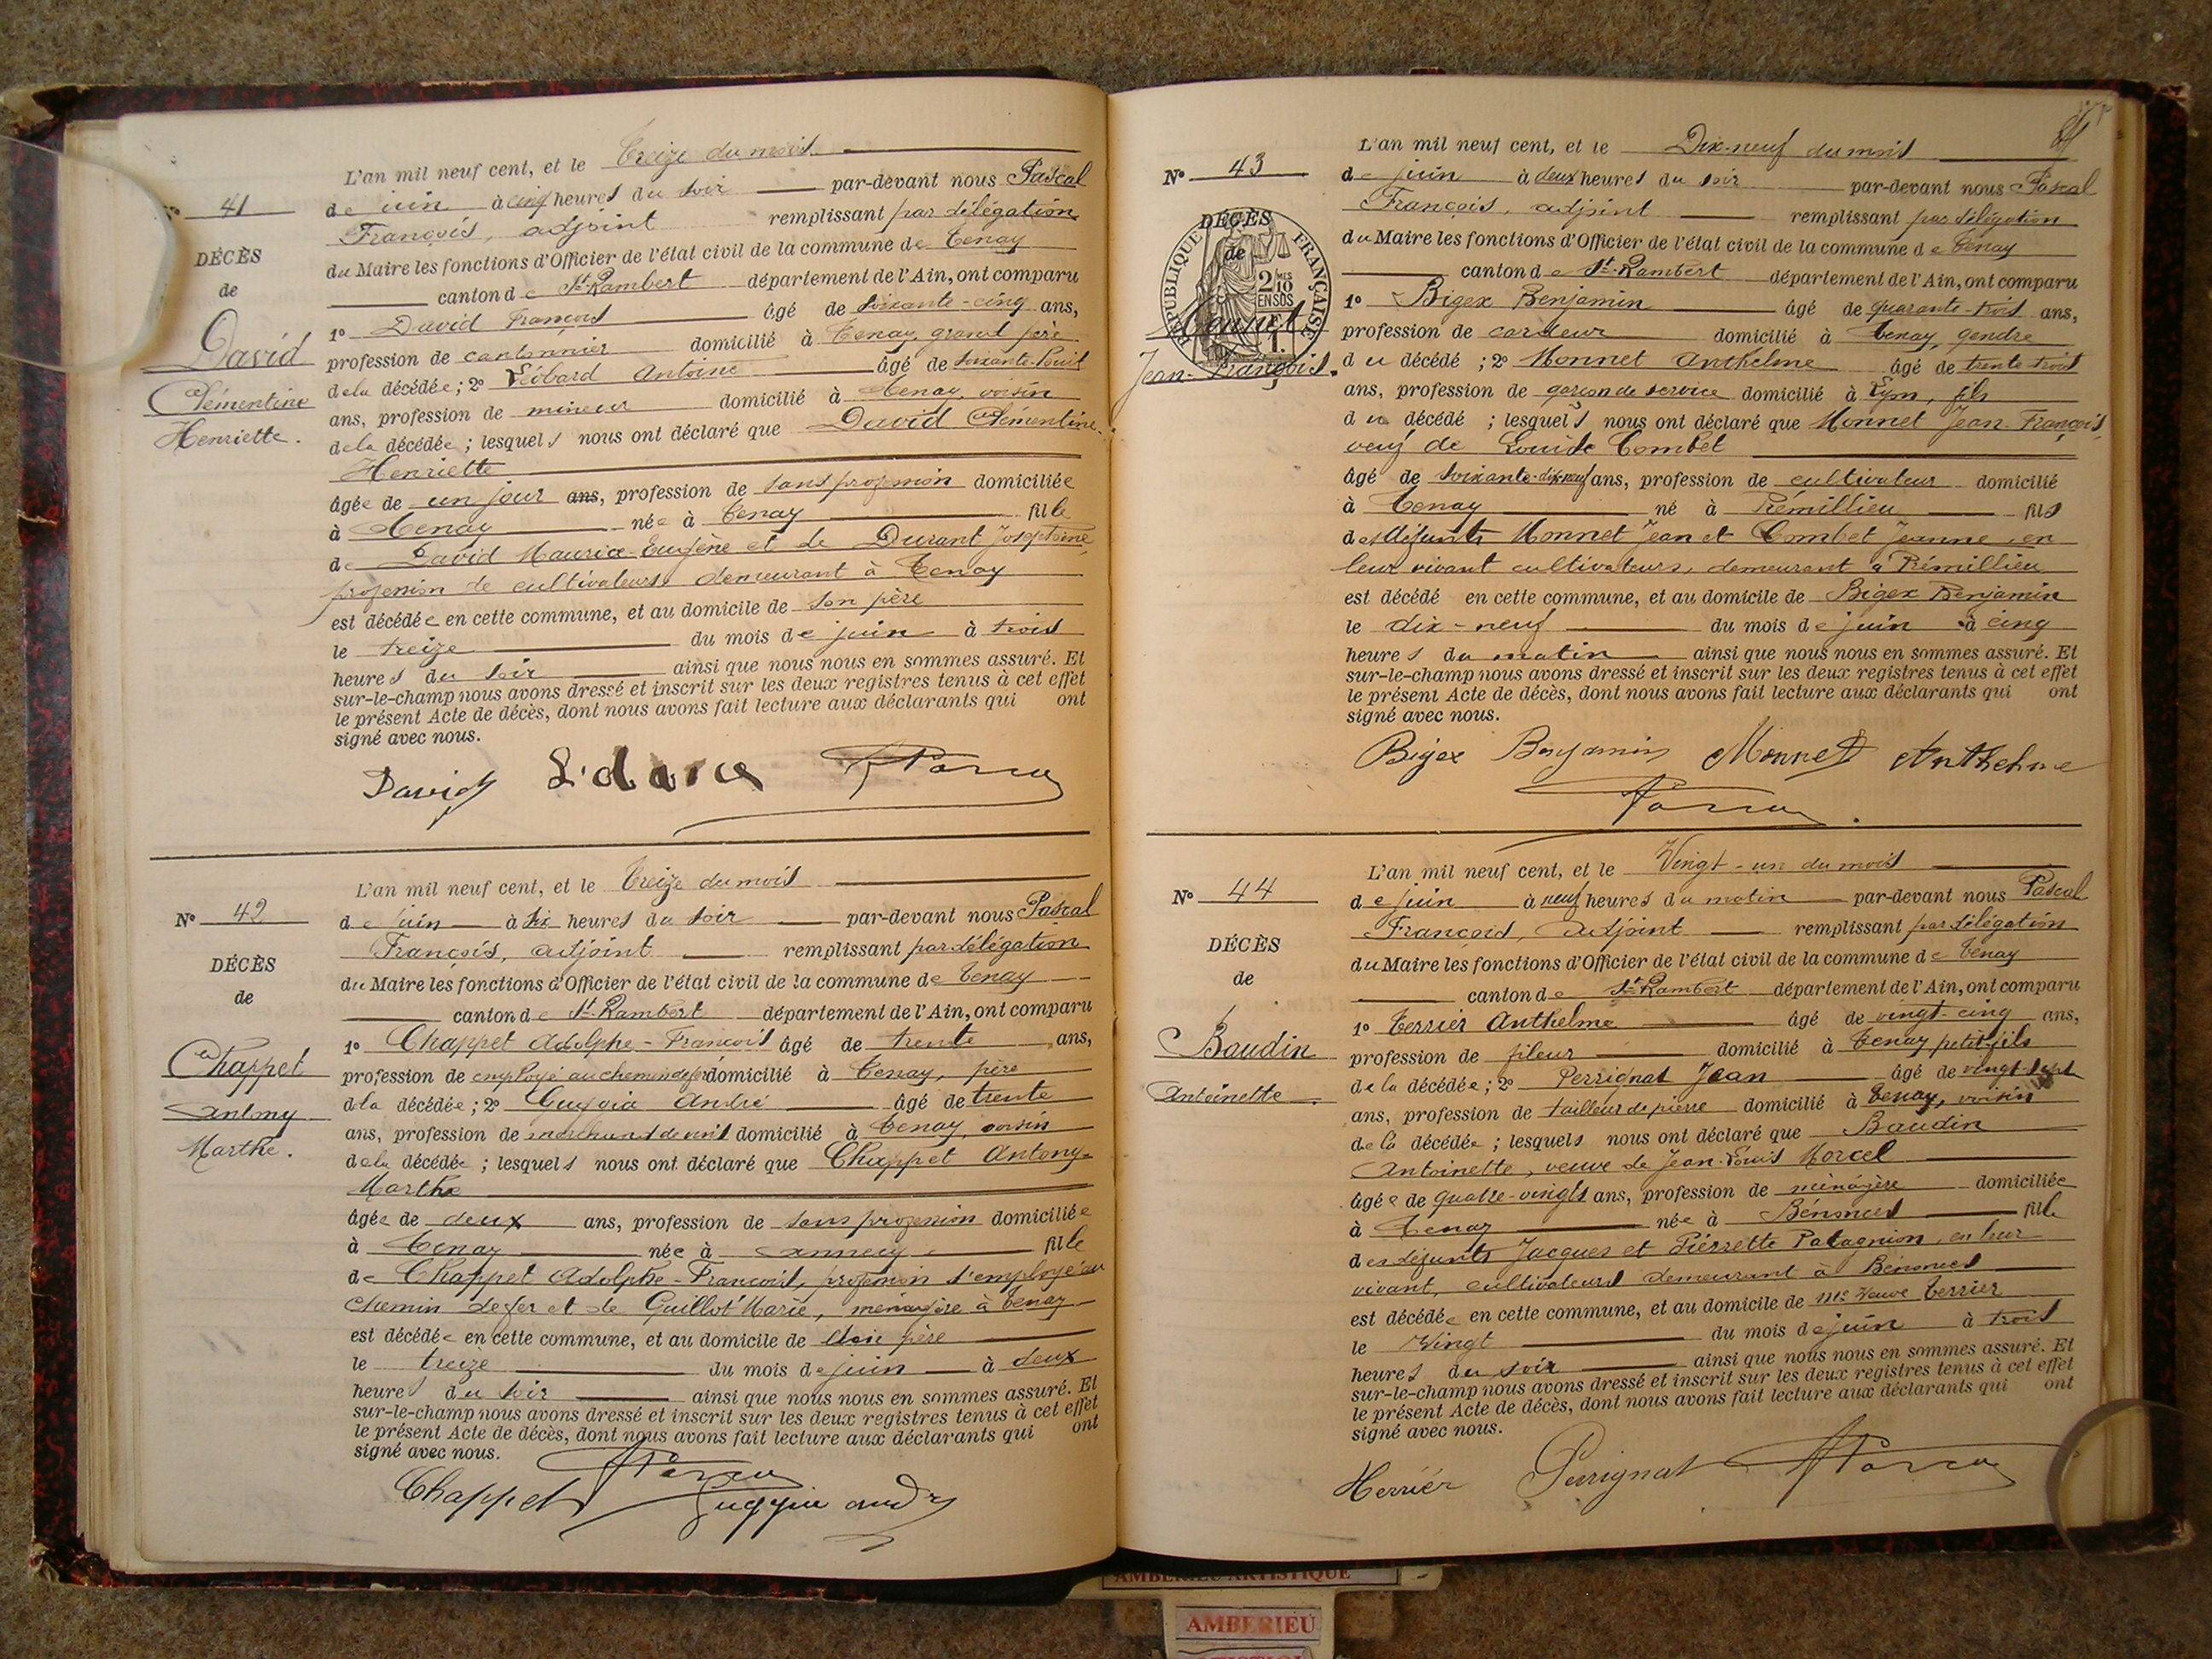 L'an mil neuf cent, et le Treize du mois
N° 41
de juin à cinq heures du soir par-devant nous Pascal
François, adjoint remplissant par délégation
DÉCÈS
du Maire les fonctions d'Officier de l'état civil de la commune de Tenay
de
canton de St-Rambert département de l'Ain, ont comparu
David
Clémentine
Henriette.
1° David François âgé de soixante-cinq ans,
profession de cantonnier domicilié à Tenay, grand père
de la décédée; 2° Léobard Antoine âgé de soixante-huit
ans, profession de mineur domicilié à Tenay, voisin
de la décédée; lesquels nous ont déclaré que David Clémentine
Henriette
âgée de un jour ans, profession de sans profession domiciliée
à Tenay née à Tenay fille
de David Maurice-Eugène et de Durant Josephine,
profession de cultivateurs demeurant à Tenay
est décédée en cette commune, et au domicile de son père
le treize du mois de juin à trois
heures du soir ainsi que nous nous en sommes assuré. Et
sur-le-champ nous avons dressé et inscrit sur les deux registres tenus à cet effet
le présent Acte de décès, dont nous avons fait lecture aux déclarants qui ont
signé avec nous.
David
L'an mil neuf cent, et le Treize du mois
N° 42
de juin à six heures du soir par-devant nous Pascal
François, adjoint remplissant par délégation
DÉCÈS
du Maire les fonctions d'Officier de l'état civil de la commune de Tenay
de
canton de St-Rambert département de l'Ain, ont comparu
Chappet
Antony
Marthe.
1° Chappet Adolphe-François âgé de trente ans,
profession de employé au chemin de fer domicilié à Tenay, père
de la décédée; 2° André âgé de trente
ans, profession de marchand de domicilié à Tenay, voisin
de la décédée; lesquels nous ont déclaré que Chappet Antony-
Marthe
âgée de deux ans, profession de sans profession domiciliée
à Tenay née à Annecy fille
de Chappet Adolphe-François, profession d'employé au
chemin de fer et de Guillot Marie, ménagère à Tenay
est décédée en cette commune, et au domicile de père
le treize du mois de juin à deux
heures du soir ainsi que nous nous en sommes assuré. Et
sur-le-champ nous avons dressé et inscrit sur les deux registres tenus à cet effet
le présent Acte de décès, dont nous avons fait lecture aux déclarants qui ont
signé avec nous.
Chappet
L'an mil neuf cent, et le Dix-neuf du mois
N° 43
de juin à deux heures du soir par-devant nous Pascal
François, adjoint remplissant par délégation
DÉCÈS
du Maire les fonctions d'Officier de l'état civil de la commune de Tenay
de
canton de St-Rambert département de l'Ain, ont comparu
RÉPUBLIQUE FRANÇAISE
2/10 EN SUS
Monnet
Jean-François.
1° Bigex Benjamin âgé de quarante-trois ans,
profession de cardeur domicilié à Tenay, gendre
du décédé; 2° Monnet Anthelme âgé de trente-trois
ans, profession de garçon de service domicilié à Lyon, fils
du décédé; lesquels nous ont déclaré que Monnet Jean-François,
veuf de Louise Combet
âgé de soixante-dix-neuf ans, profession de cultivateur domicilié
à Tenay né à Prémillieu fils
des défunts Monnet Jean et Combet Jeanne, en
leur vivant cultivateurs, demeurant à Prémillieu
est décédé en cette commune, et au domicile de Bigex Benjamin
le dix-neuf du mois de juin à cinq
heures du matin ainsi que nous nous en sommes assuré. Et
sur-le-champ nous avons dressé et inscrit sur les deux registres tenus à cet effet
le présent Acte de décès, dont nous avons fait lecture aux déclarants qui ont
signé avec nous.
Bigex Benjamin Monnet Anthelme
L'an mil neuf cent, et le Vingt-un du mois
N° 44
de juin à neuf heures du matin par-devant nous Pascal
François, adjoint remplissant par délégation
DÉCÈS
du Maire les fonctions d'Officier de l'état civil de la commune de Tenay
de
canton de St-Rambert département de l'Ain, ont comparu
Baudin
Antoinette.
1° Terrier Anthelme âgé de vingt-cinq ans,
profession de fileur domicilié à Tenay, petit-fils
de la décédée; 2° Perrignat Jean âgé de vingt-sept
ans, profession de tailleur de pierre domicilié à Tenay, voisin
de la décédée; lesquels nous ont déclaré que Baudin
Antoinette, veuve de Jean-Louis Morcel
âgée de quatre-vingts ans, profession de ménagère domiciliée
à Tenay née à Bénonces fille
des défunts Jacques et Pierrette Patagnion, en leur
vivant, cultivateurs demeurant à Bénonces
est décédée en cette commune, et au domicile de Mme Veuve Terrier
le Vingt du mois de juin à trois
heures du soir ainsi que nous nous en sommes assuré. Et
sur-le-champ nous avons dressé et inscrit sur les deux registres tenus à cet effet
le présent Acte de décès, dont nous avons fait lecture aux déclarants qui ont
signé avec nous.
Perrignat
AMBERIEU ARTISTIQUE
AMBERIEU